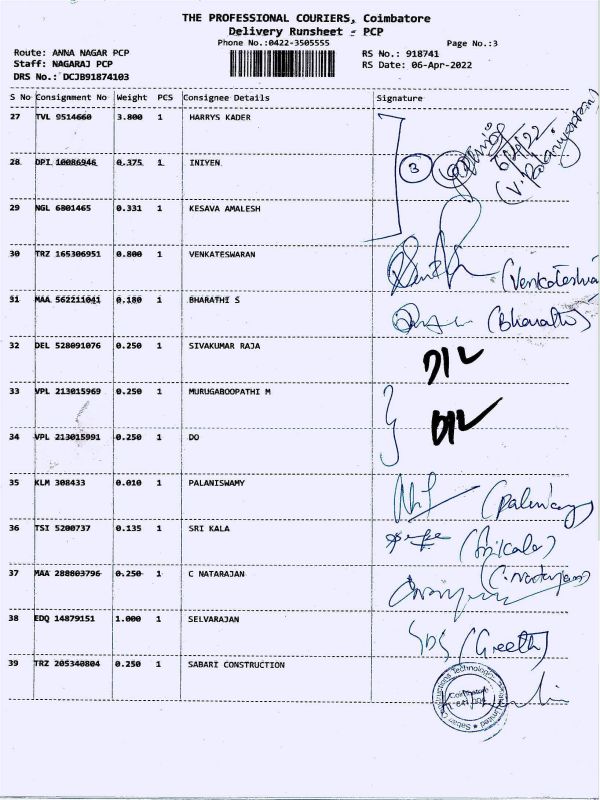 THE PROFESSIONAL COURIERS, Coimbatore
Delivery Runsheet - PCP
Phone No.:0422-3505555
Page No.:3
Route: ANNA NAGAR PCP
RS No.: 918741
Staff: NAGARAJ PCP
RS Date: 06-Apr-2022
DRS No.: DCJB91874103
S No Consignment No Weight PCS Consignee Details Signature
27 TVL 9514660 3.800 1 HARRYS KADER
28 DPI 10086946 0.375 1 INIYEN
3
29 NGL 6801465 0.331 1 KESAVA AMALESH
30 TRZ 165306951 0.800 1 VENKATESWARAN
31 MAA 562211041 0.180 1 BHARATHI S
32 DEL 528091076 0.250 1 SIVAKUMAR RAJA
D/L
33 VPL 213015969 0.250 1 MURUGABOOPATHI M
D/L
34 VPL 213015991 0.250 1 DO
35 KLM 308433 0.010 1 PALANISWAMY
36 TSI 5200737 0.135 1 SRI KALA
37 MAA 288803796 0.250 1 C NATARAJAN
38 EDQ 14879151 1.000 1 SELVARAJAN
(Geeth)
39 TRZ 205340804 0.250 1 SABARI CONSTRUCTION